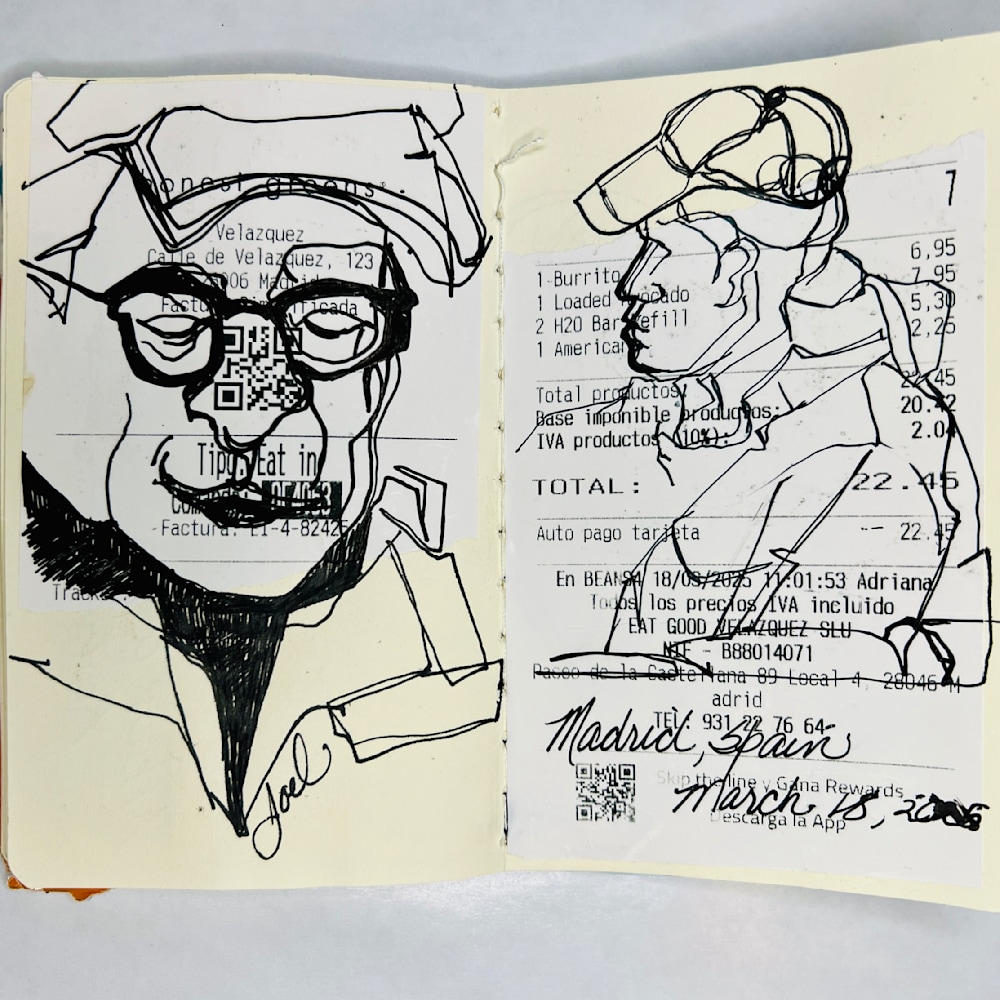 honest greens.
Velazquez
Calle de Velazquez, 123
28006 Madrid
Factura Simplificada
Tipo: Eat in
Factura: E1-4-82425
Joel
7
1 Burrito 6,95
1 Loaded Avocado 7,95
2 H2O Bar Refill 5,30
1 American 2,25
Total productos: 22.45
Base imponible productos: 20.42
IVA productos (10%): 2.04
TOTAL: 22.45
Auto pago tarjeta 22.45
En BEANS4 18/03/2025 11:01:53 Adriana
Todos los precios IVA incluido
EAT GOOD VELAZQUEZ SLU
NIF - B88014071
Paseo de la Castellana 89 Local 4, 28046 M
adrid
TEL: 931 22 76 64
Madrid, Spain
Skip the line y Gana Rewards
March 18,
Descarga la App